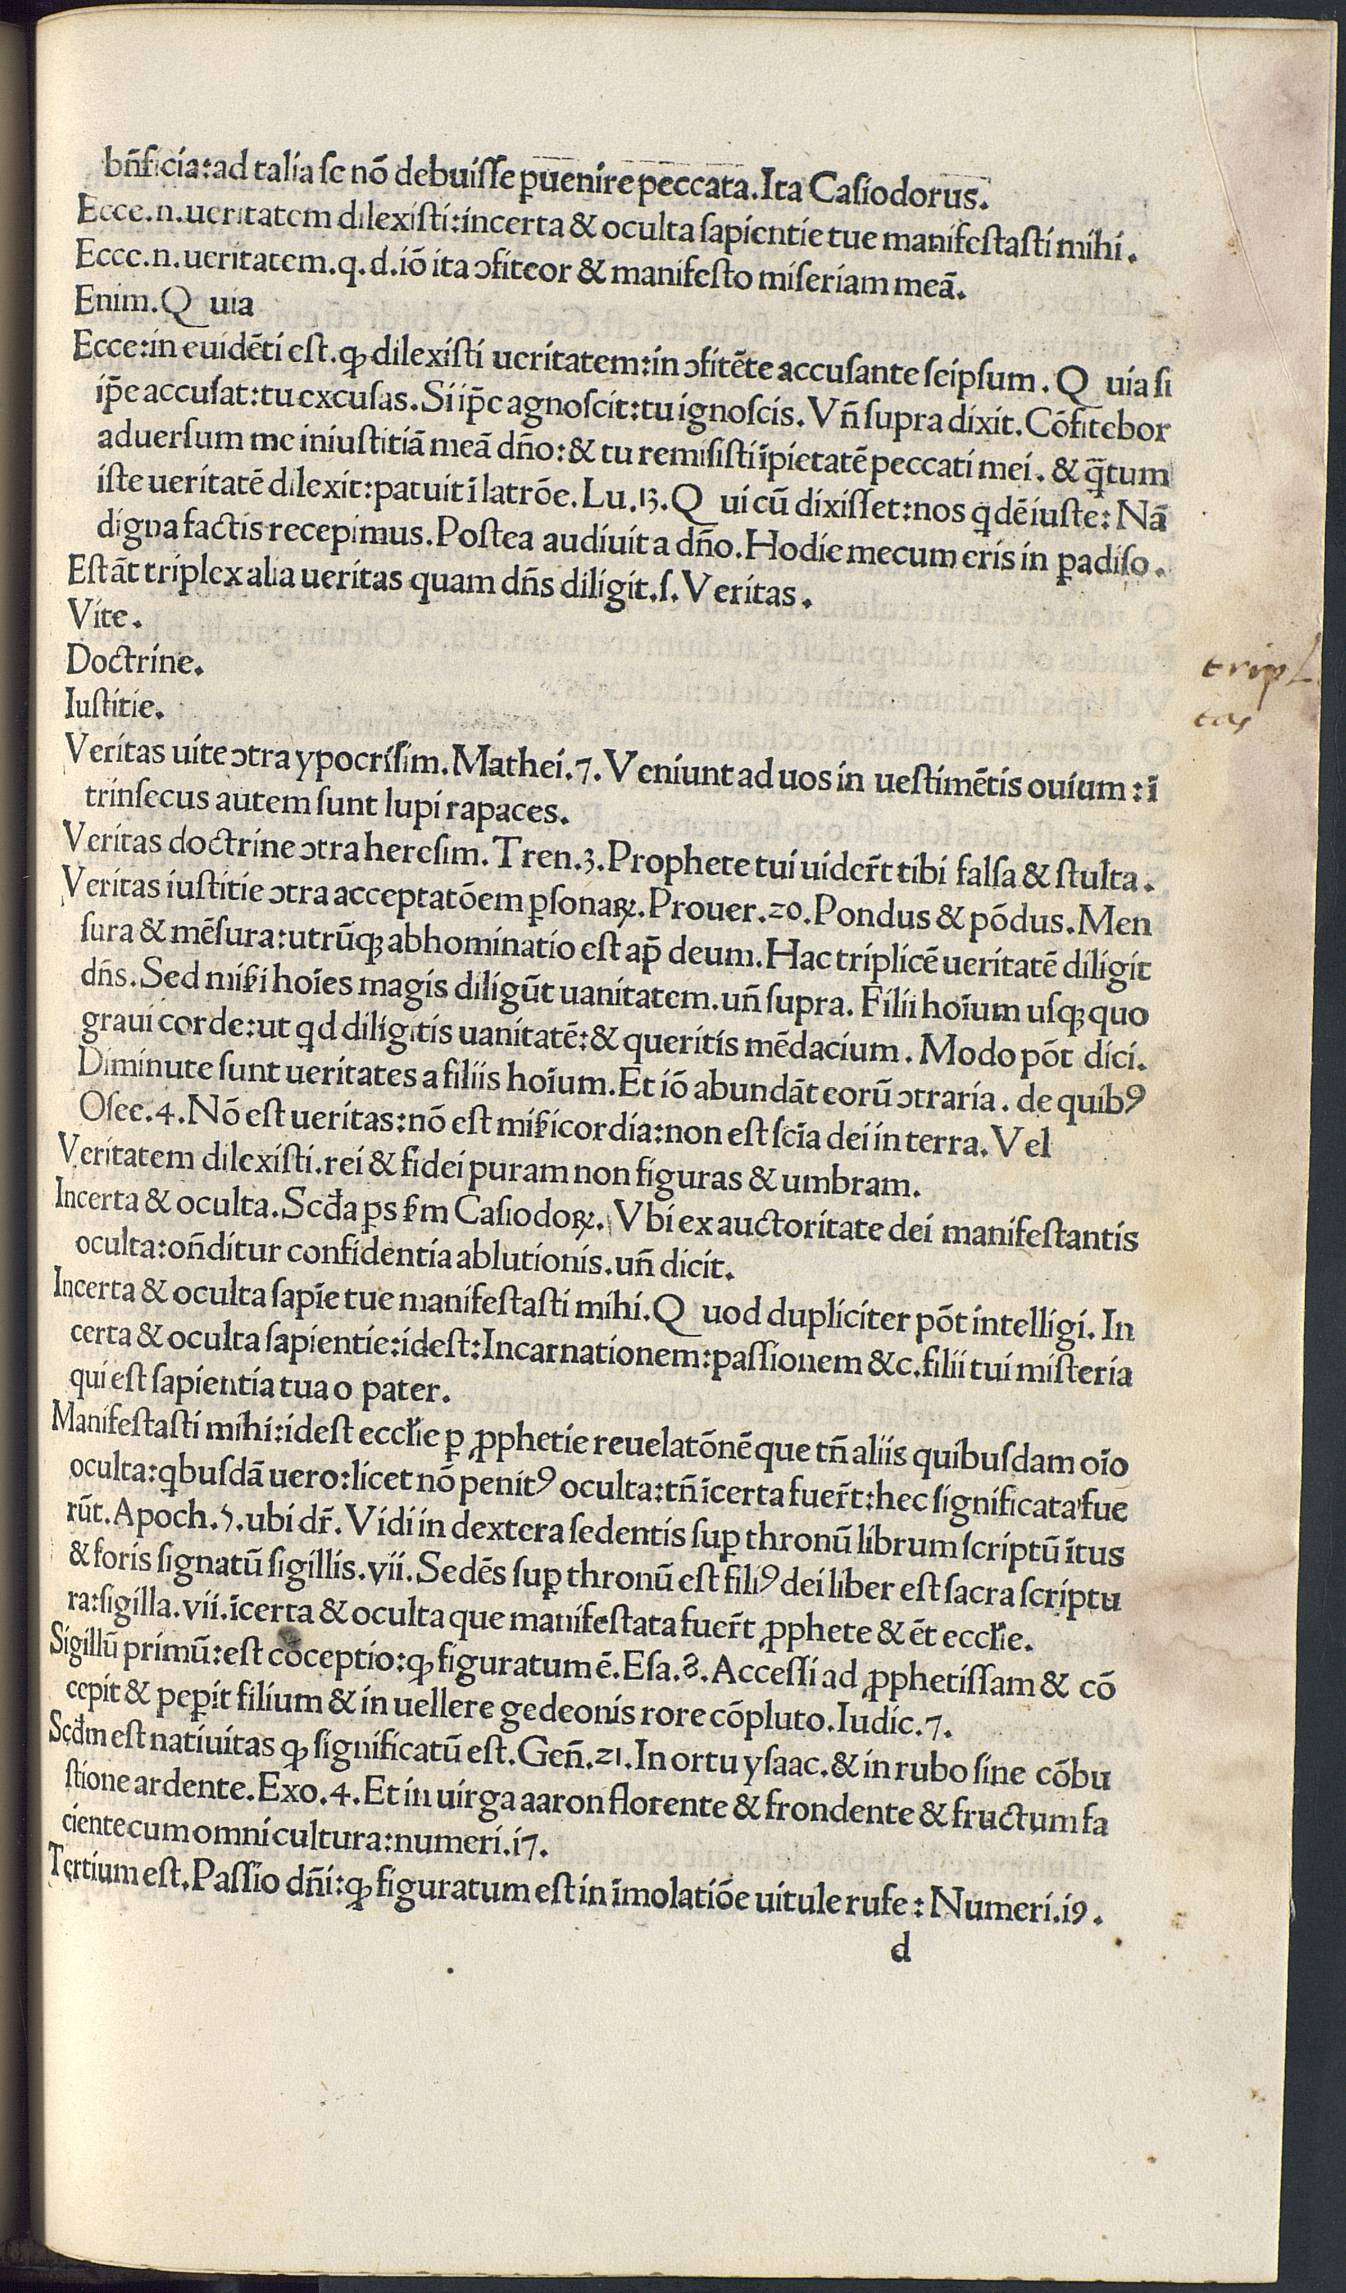 bn̄ficia:ad talia ſe nō debuiſſe ꝑuenire peccata. Ita Caſiodorus.
Ecce.n.ueritatem dilexiſti:incerta & oculta ſapientie tue manifeſtaſti mihi.
Ecce.n.ueritatem.q.d.iō ita ↄfiteor & manifeſto miſeriam meā.
Enim.Q uia
Ecce:in euidēti eſt.ꝙ dilexiſti ueritatem:in ↄfitēte accuſante ſeipſum. Q uia ſi
ip̄e accuſat:tu excuſas. Si ip̄e agnoſcit:tu ignoſcis. Vn̄ ſupra dixit. Cōfitebor
aduerſum me iniuſtitiā meā dn̄o:& tu remiſiſti īpietatē peccati mei. & q̄tum
iſte ueritatē dilexit:patuit ī latrōe. Lu.13. Q ui cū dixiſſet:nos qdē iuſte: Nā
digna factis recepimus. Poſtea audiuit a dn̄o. Hodie mecum eris in ꝑadiſo.
Eſt āt triplex alia ueritas quam dn̄s diligit.ſ. Veritas.
Vite.
Doctrine.
Iuſtitie.
tripl
tas
Veritas uite ↄtra ypocriſim. Mathei.7. Veniunt ad uos in ueſtimētis ouium: ī
trinſecus autem ſunt lupi rapaces.
Veritas doctrine ↄtra hereſim. Tren.3. Prophete tui uider̄t tibi falſa & ſtulta.
Veritas iuſtitie ↄtra acceptatōem ꝑſonaꝝ. Prouer.20. Pondus & pōdus. Men
ſura & mēſura:utrūqꝫ abhominatio eſt ap̄ deum. Hac triplicē ueritatē diligit
dn̄s. Sed miẜi hoīes magis diligūt uanitatem. un̄ ſupra. Filii hoīum uſqꝫ quo
graui corde:ut qd diligitis uanitatē:& queritis mēdacium. Modo pōt dici.
Diminute ſunt ueritates a filiis hoīum. Et iō abundāt eorū ↄtraria. de quibꝰ
Oſee.4. Nō eſt ueritas:nō eſt miẜicordia:non eſt ſcīa dei in terra. Vel
Veritatem dilexiſti.rei & fidei puram non figuras & umbram.
Incerta & oculta. Scđa ꝑs ẜm Caſiodoꝝ. Vbi ex auctoritate dei manifeſtantis
oculta:on̄ditur confidentia ablutionis.un̄ dicit.
Incerta & oculta ſapīe tue manifeſtaſti mihi. Q uod dupliciter pōt intelligi. In
certa & oculta ſapientie:ideſt:Incarnationem:paſſionem &c.filii tui miſteria
qui eſt ſapientia tua o pater.
Manifeſtaſti mihi:ideſt eccłie ꝑ ꝓphetie reuelatōnē que tn̄ aliis quibuſdam oīo
oculta:qbuſdā uero:licet nō penitꝰ oculta:tn̄ īcerta fuer̄t:hec ſignificata fue
rūt. Apoch.5.ubi dr̄. Vidi in dextera ſedentis ſuꝑ thronū librum ſcriptū ītus
& foris ſignatū ſigillis.vii. Sedēs ſuꝑ thronū eſt filiꝰ dei liber eſt ſacra ſcriptu
ra:ſigilla.vii.īcerta & oculta que manifeſtata fuer̄t ꝓphete & ēt eccłie.
Sigillū primū:eſt cōceptio:ꝙ figuratum ē. Eſa.8. Acceſſi ad ꝓphetiſſam & cō
cepit & peꝑit filium & in uellere gedeonis rore cōpluto. Iudic.7.
Scđm eſt natiuitas ꝙ ſignificatū eſt. Gen̄.21. In ortu yſaac.& in rubo ſine cōbu
ſtione ardente. Exo.4. Et in uirga aaron florente & frondente & fructum fa
ciente cum omni cultura:numeri.17.
Tertium eſt. Paſſio dn̄i:ꝙ figuratum eſt in īmolatiōe uitule rufe: Numeri.19.
d